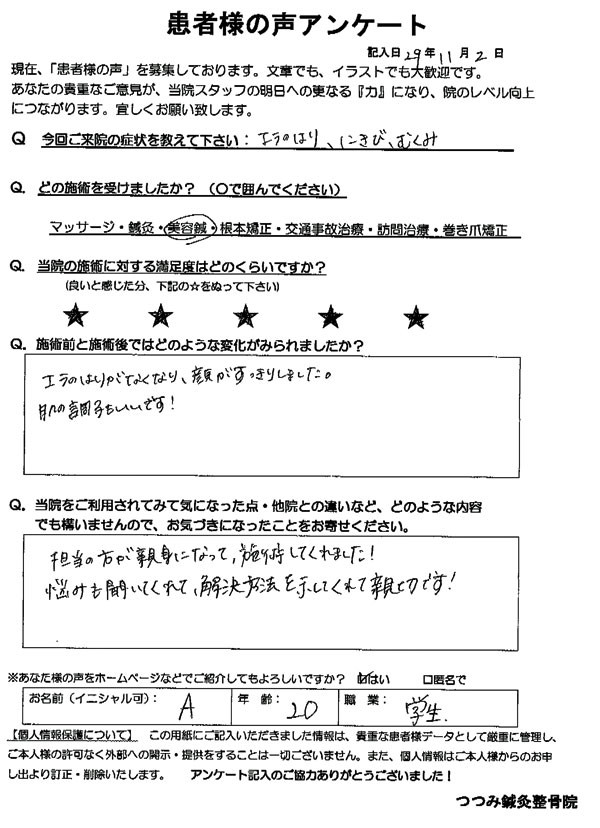 患者様の声アンケート
記入日29年11月2日
現在、「患者様の声」を募集しております。文章でも、イラストでも大歓迎です。
あなたの貴重なご意見が、当院スタッフの明日への更なる『力』になり、院のレベル向上
につながります。宜しくお願い致します。
Q 今回ご来院の症状を教えて下さい：エラのはり、にきび、むくみ
Q. どの施術を受けましたか？（〇で囲んでください）
マッサージ・鍼灸・美容鍼・根本矯正・交通事故治療・訪問治療・巻き爪矯正
Q. 当院の施術に対する満足度はどのくらいですか？
(良いと感じた分、下記の☆をぬって下さい)
★ ★ ★ ★ ★
Q. 施術前と施術後ではどのような変化がみられましたか？
エラのはりがなくなり、顔がすっきりしました。
肌の調子もいいです！
Q. 当院をご利用されてみて気になった点・他院との違いなど、どのような内容
でも構いませんので、お気づきになったことをお寄せください。
担当の方が親身になって、施術してくれました！
悩みも聞いてくれて、解決方法を示してくれて親切です！
※あなた様の声をホームページなどでご紹介してもよろしいですか？ ☑はい □匿名で
お名前（イニシャル可）： A 年齢： 20 職業： 学生.
【個人情報保護について】 この用紙にご記入いただきました情報は、貴重な患者様データとして厳重に管理し、
ご本人様の許可なく外部への開示・提供をすることは一切ございません。また、個人情報はご本人様からのお申
し出より訂正・削除いたします。 アンケート記入のご協力ありがとうございました！
つつみ鍼灸整骨院